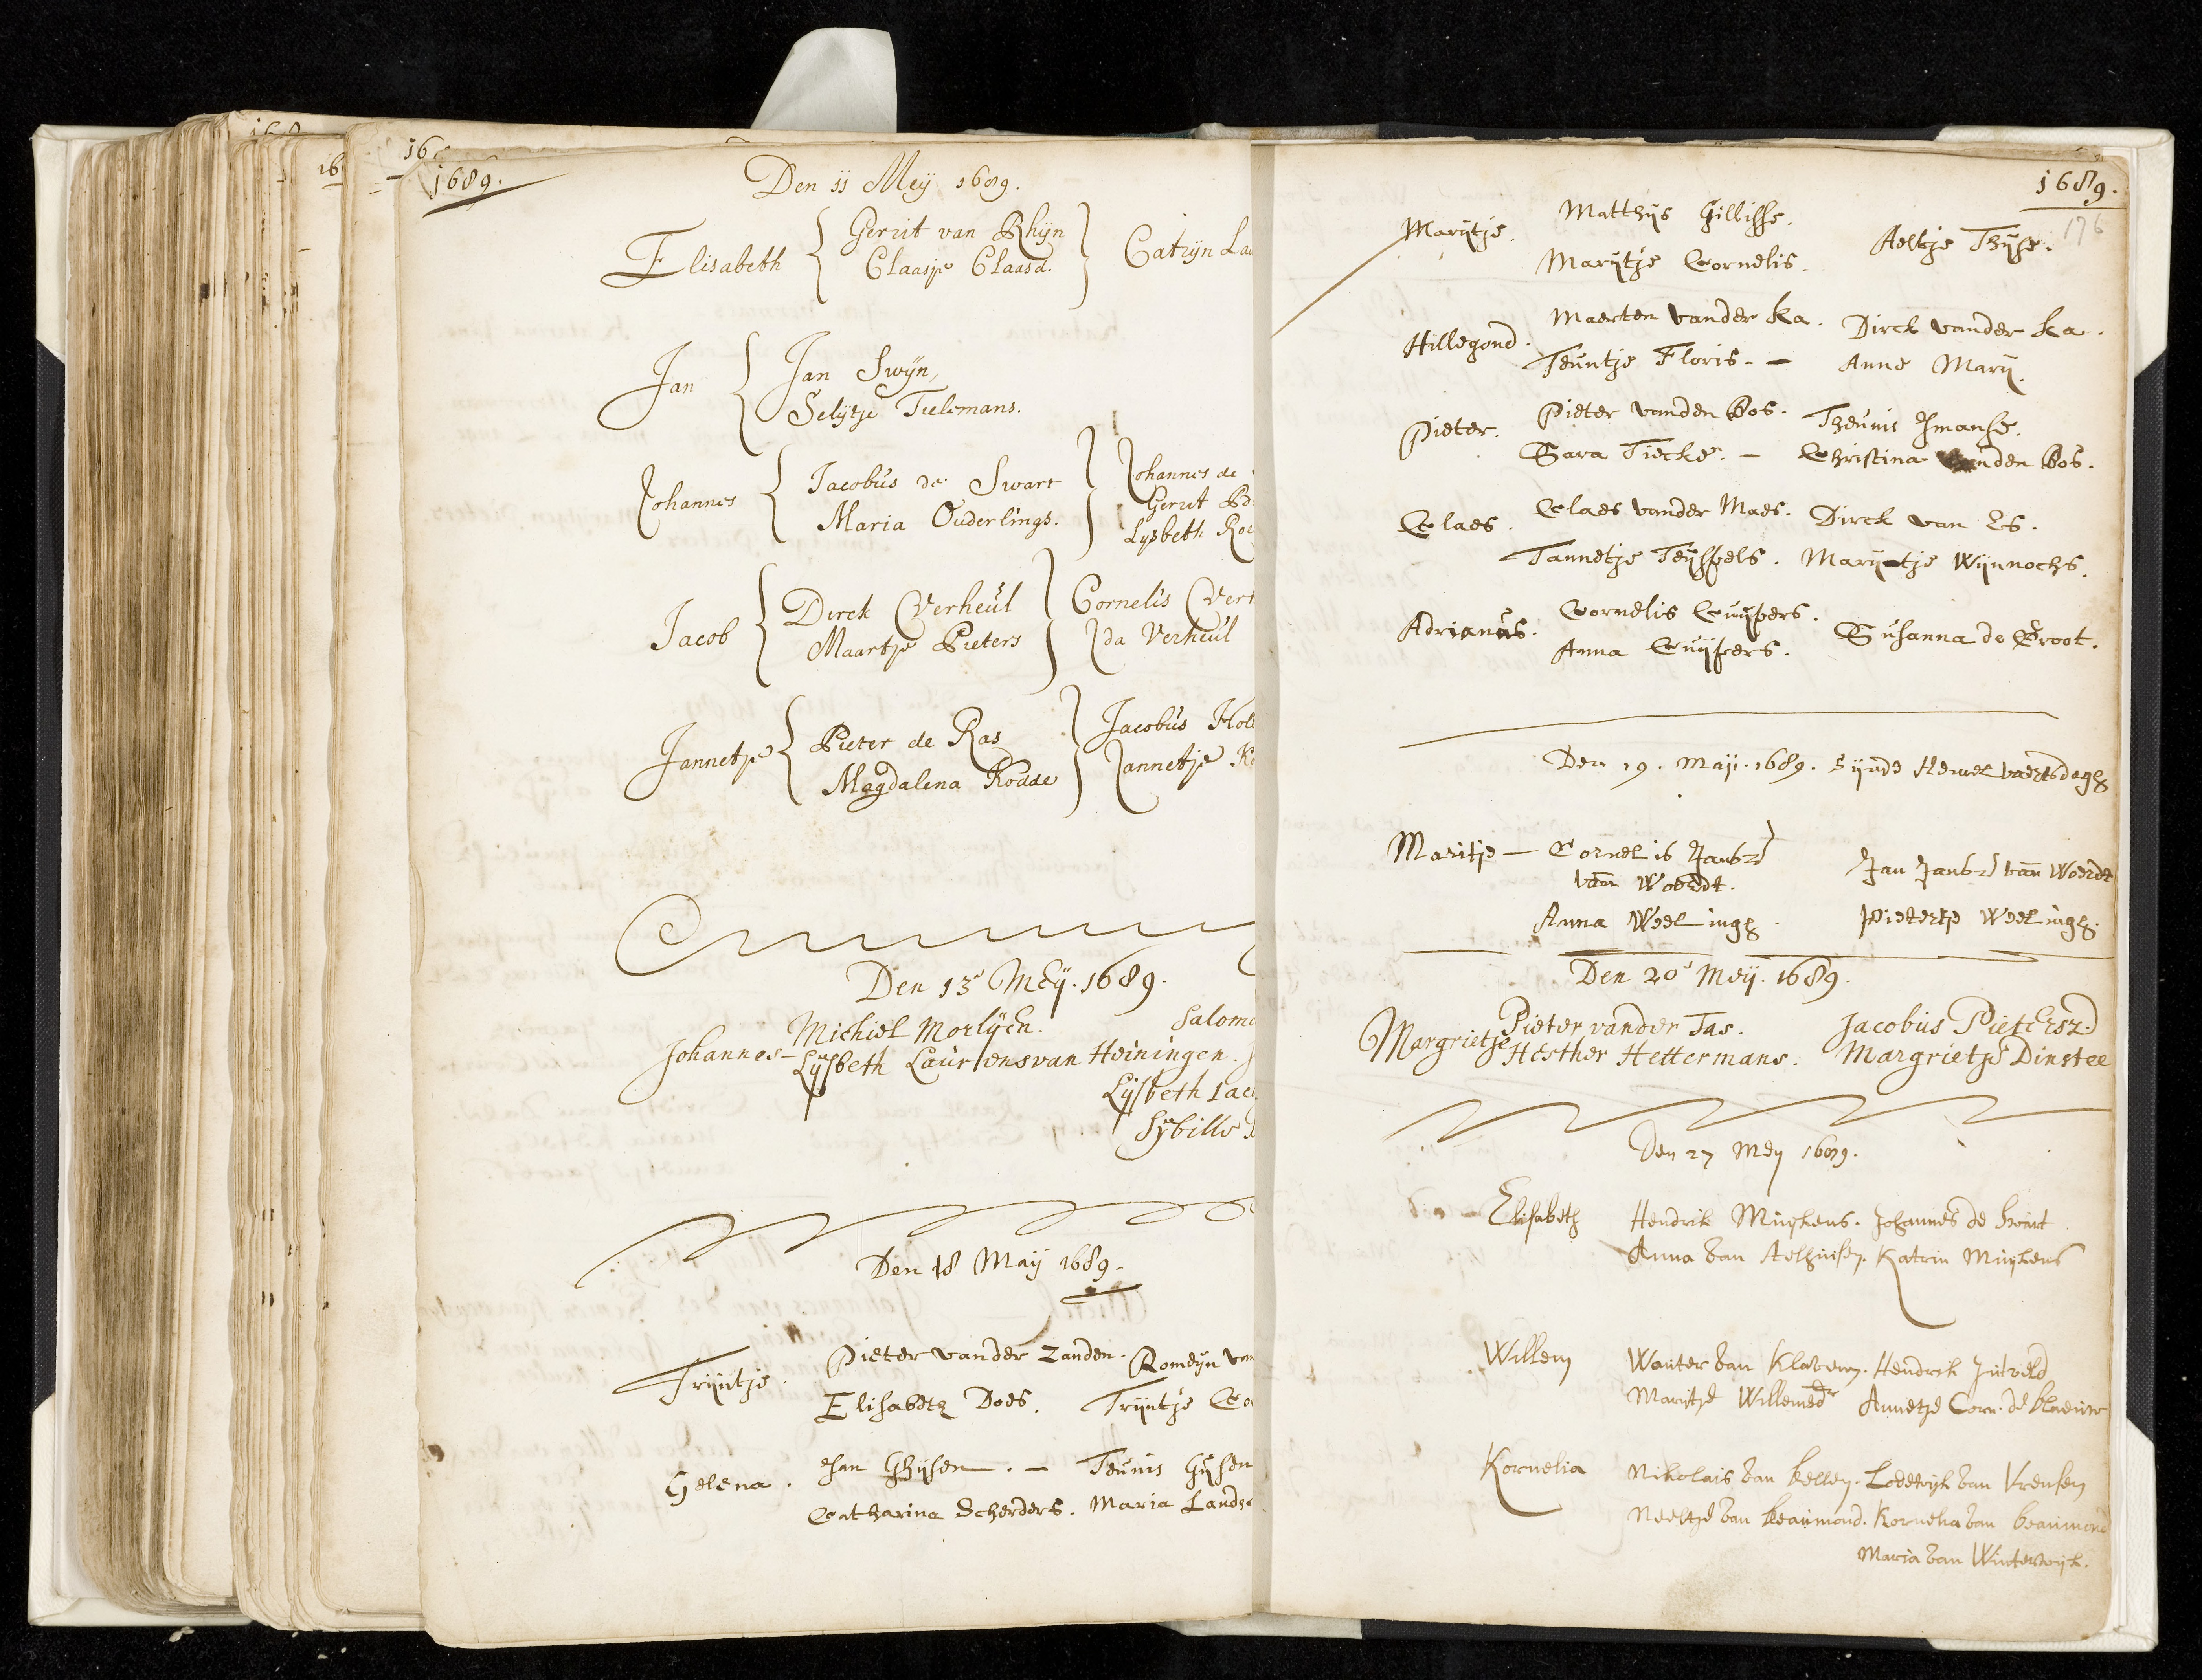 1689.
Den 11 Meÿ 1689.
Elisabeth Gerrit van Rhijn
Claasje Claasd. Catrijn
Jan Jan Swijn,
Selijtje Tielemans.
Johannes Jacobus de Swart Johannes de
Maria Ouderlings. Gerrit
Lysbeth
Jacob Dirck Verheul Cornelis
Maartje Pieters Ida Verheul
Jannetje Pieter de Ras Jacobus
Magdalena Kodde Jannetje
Den 13e Meÿ. 1689.
Michiel Morlÿen.
Johannes - Lÿsbeth Laurensvan Heiningen.
Lÿsbeth
Sÿbille
Den 18 Maÿ 1689.
Trijntje. Pieter vander Zanden. Romeijn
Elisabeth Does. Trijntje
Helena. Jan Ghijsen. - Teunis Gijsen
Catharina Scherders. Maria
1689.
176
Marijtje. Matthijs Gillisse. Aeltje Thijse.
Marijtje Cornelis.
Hillegond. Maerten vander Ka. Dirck vander Ka.
Teuntje Floris. - Anne Marij.
Pieter. Pieter vanden Bos. Theunis Jmanse.
Sara Tiecke. - Christina vanden Bos.
Claes. Claes vander Maes. Dirck van Es.
Tannetje Teijssels. Marijtje Wijnnochs.
Adrianus. Cornelis Cuijpers. Susanna de Groot.
Anna Cuijpers.
Den 19. Maij. 1689. sijnde Hemelvaertsdagh
Maritje - Cornelis Jansz Jan Jansz van Woerdt
van Woerdt.
Anna Weelingh. Pietertje Weelingh.
Den 20e Meij. 1689.
Margrietje Pieter vander Tas. Jacobus Pietersz.
Hesther Hettermans. Margrietje Dinstee
Den 27 Mey 1689.
Elisabeth Hendrik Muykens. Johannes de
Anna van Aelhuisen. Katrin Muykens
Willem Wouter van Klaveren. Hendrik
Maritje Willemsdr Annetje Corn. de Blaeuw
Kornelia Nikolais van Kellen. Lodewijk van
Neeltje van Beaumond. Kornelia van Beaumond
Maria van Winterwijk.